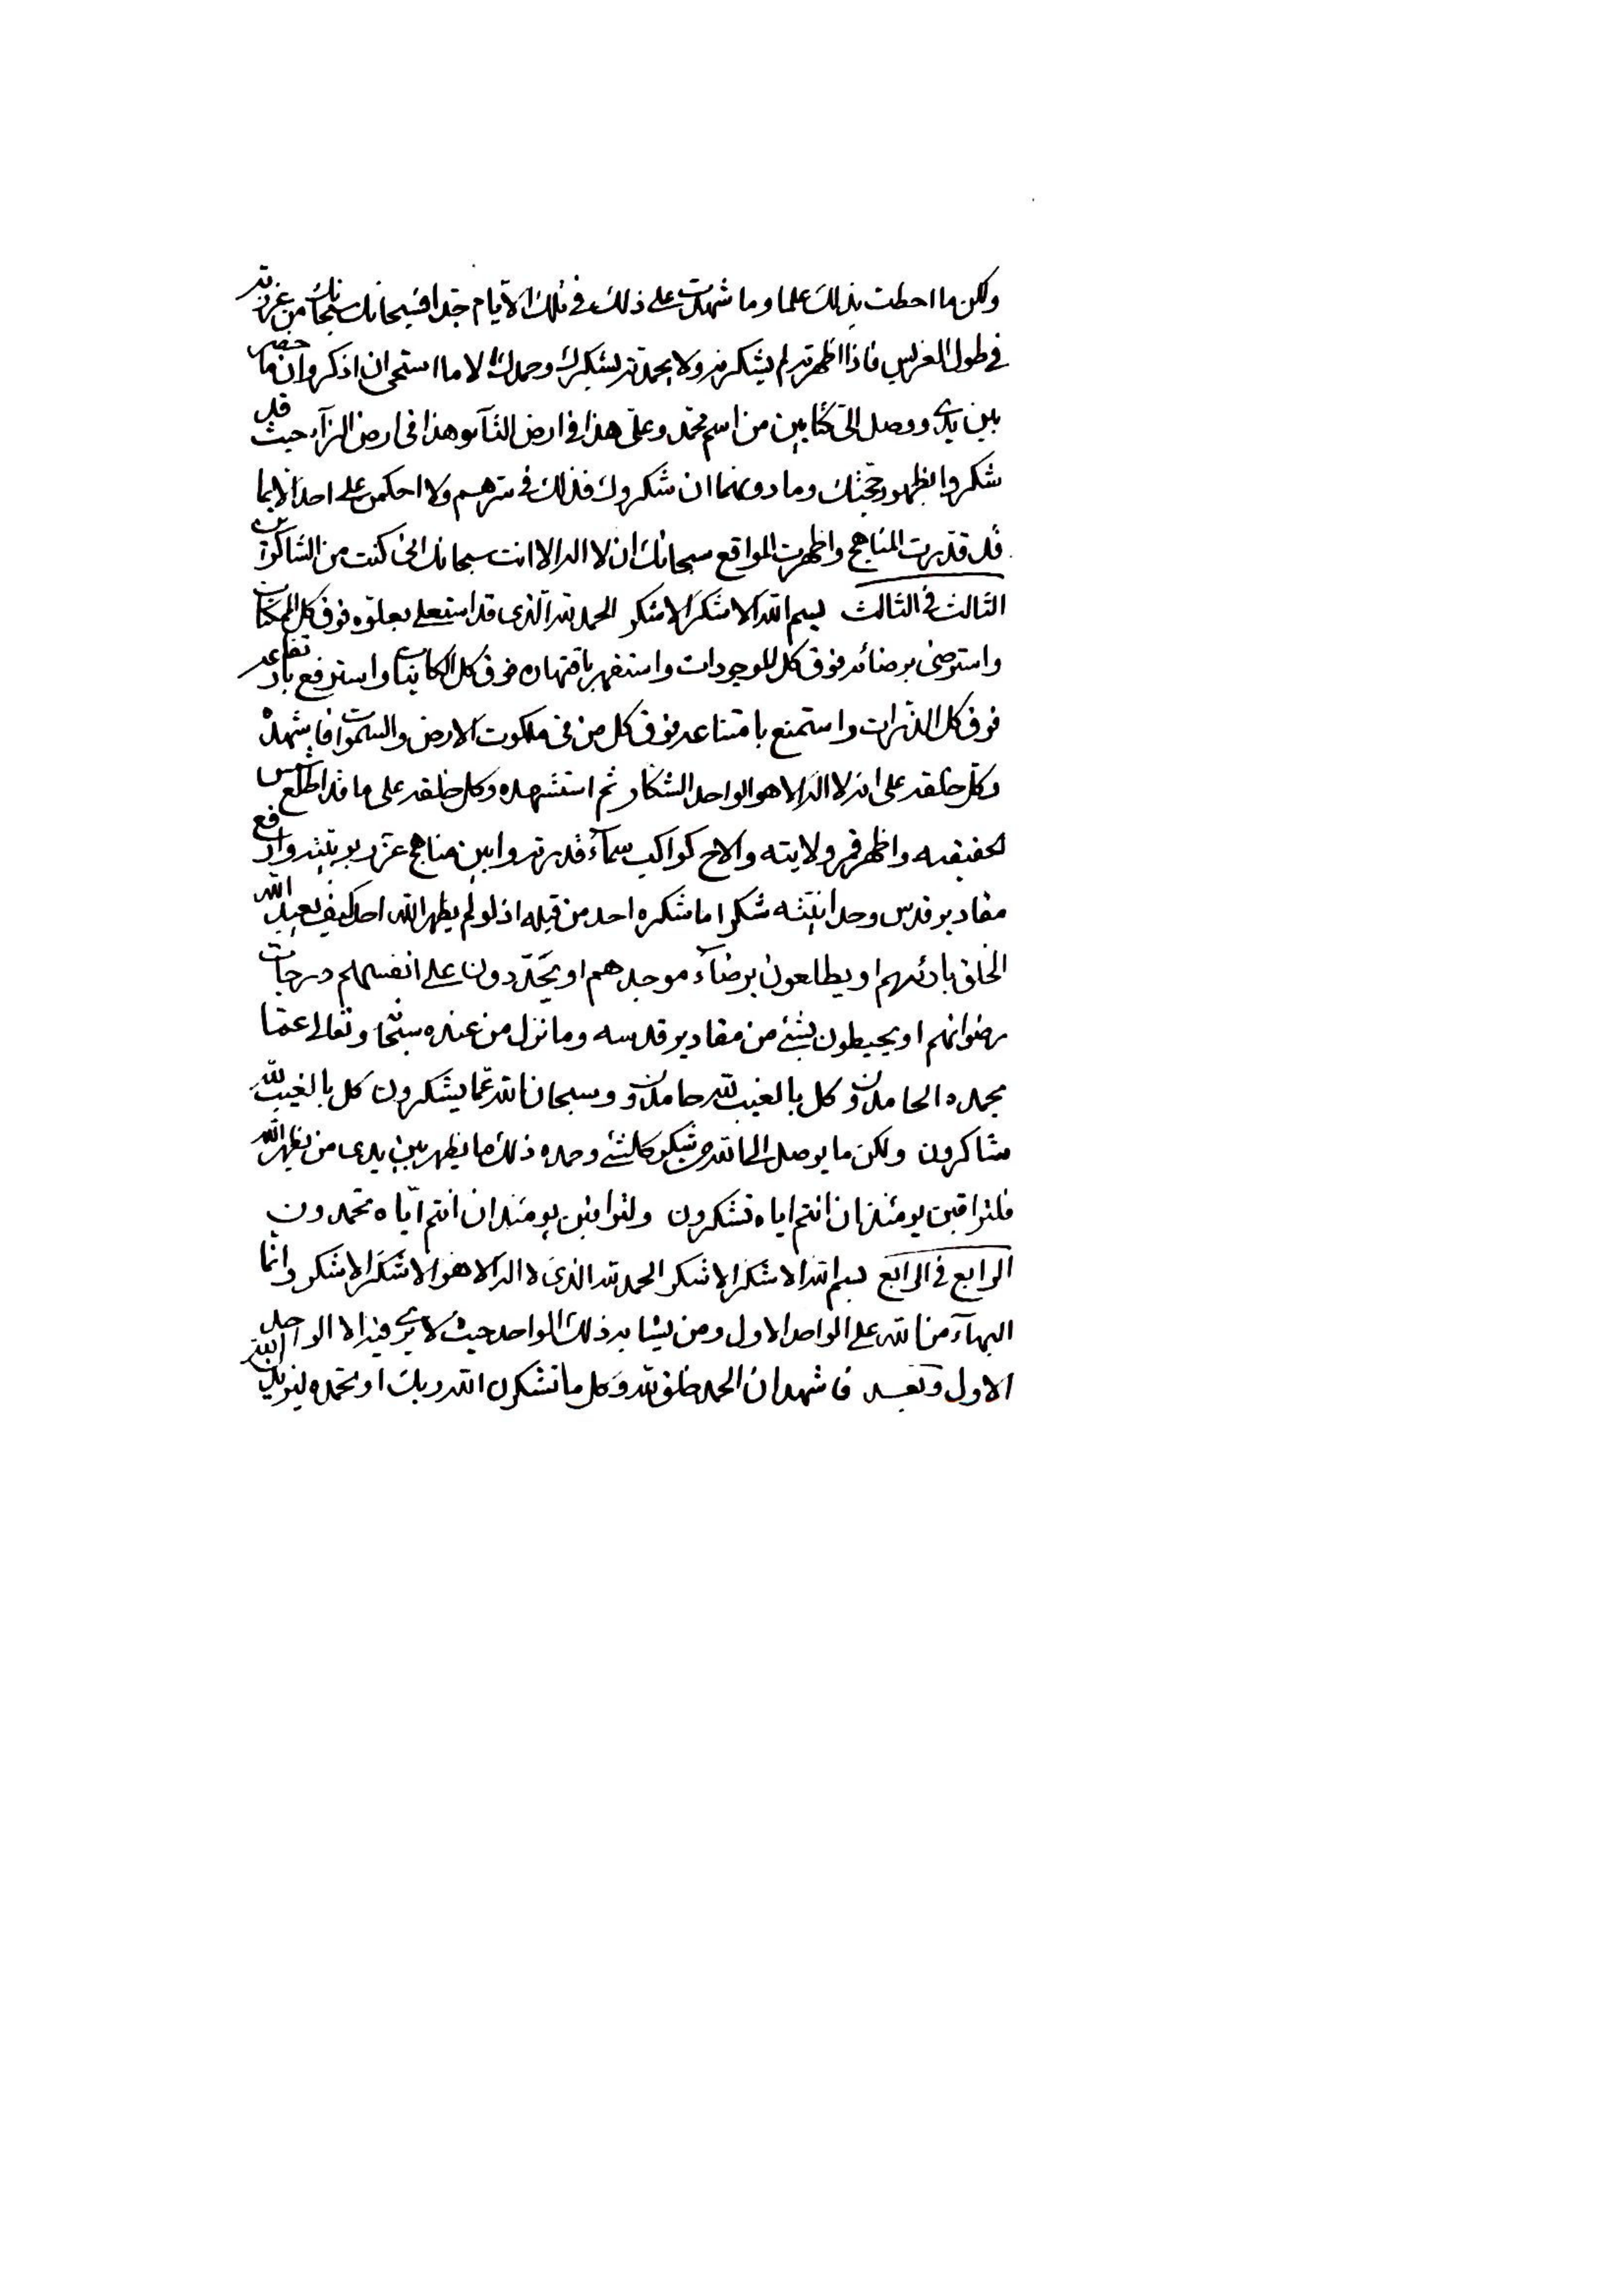 ولكن ما احطت بذلك علما وما شهدت على ذلك فى تلك الايام جدا فسبحانك سبحانك من غرسته
فى طول الغرس فاذا اظهرته لم يشكرنه ولا يحمدنه بشكرك وحمدك الا ما استحى ان اذكر وان ما حضر
بين يدى ووصل الىّ كتابين من اسم محمد وعلىّ هذا فى ارض التآء وهذا فى ارض الزآء حيث قد
شكروا بظهور حجتك وما دونهما ان شكروك فذلك فى سرهم ولا احكمن على احد الا بما
قد قدرت المناهج واظهرت المواقع سبحانك ان لا اله الا انت سبحانك انى كنت من الشاكرين
الثالث فى الثالث بسم الله الاشكر الاشكر الحمد لله الذى قد استعلى بعلوه فوق كل الممكنات
واسترضى برضائه فوق كل الموجودات واستقهر باقتهاره فوق كل الكاينات واسترفع بارتفاعه
فوق كل الذرات واستمنع بامتناعه فوق كل من فى ملكوت الارض والسموات فاشهده
وكل خلقه على انه لا اله الا هو الواحد الشكار ثم استشهده وكل خلقه على ما قد اطلع شمس
الحقيقه واظهر قمر ولايته والاح كواكب سمآء قدرته وابين مناهج عز ربوبيته وارفع
مقادير قدس وحدانيته شكرا ما شكره احد من قبله اذ لو لم يظهر الله احد كيف يعبد الله
الخلق بارئهم او يطلعون برضآء موجدهم او يحدّدون على انفسهم درجات
رضوانهم او يحيطون بشئ من مقادير قدسه وما نزل من عنده سبحانه وتعالى عما
يحمده الحامدون وكل بالغيب لله حامدون وسبحان الله عما يشكرون كل بالغيب لله
شاكرون ولكن ما يوصل الى الله من شكر كلشئ وحمده ذلك ما يظهر بين يدى من يظهره الله
فلتراقبن يومئذ ان انتم اياه تشكرون ولتراقبن يومئذ ان انتم ايّاه تحمدون
الرابع فى الرابع بسم الله الاشكر الاشكر الحمد لله الذى لا اله الا هو الاشكر الاشكر وانما
البهآء من الله على الواحد الاول ومن يشابه ذلك الواحد حيث لا يرى فيه الا الواحد
الاول وبعد فاشهد ان الحمد خلق لله وكل ما تشكرن الله ربك او تحمده